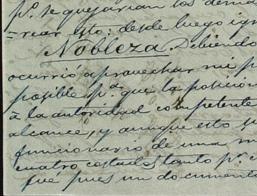 pª. se quejarian los dema
rear esto: desde luego ign
Nobleza. Debiendo
ocurrió aprovechar mi p
posible pª. que la peticion
á la autoridad competente
alcance, y aunque esto s
funcionario de una m
cuatro costados tanto pª.
qué pues un documento